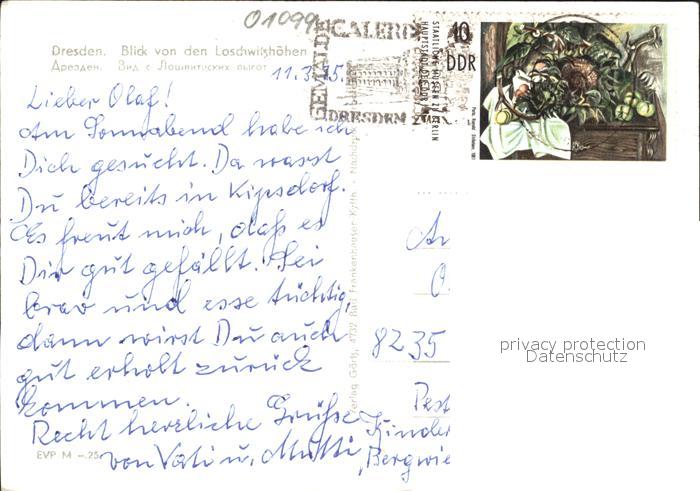 01099
Dresden. Blick von den Loschwitzhöhen
Дрезден. Вид с Лошвитцских высот
11.3.75.
Lieber Olaf!
Am Sonnabend habe ich
Dich gesucht. Da warst
Du bereits in Kipsdorf.
Es freut mich, daß es
Dir gut gefällt. Sei
brav und esse tüchtig,
dann wirst Du auch
gut erholt zurück
kommen.
Recht herzliche Grüße
von Vati u. Mutti
EVP M -.25
Verlag Görtz, 4732 Bad Frankenhausen-Kyffh.
GEMÄLDE
GALERIE
DRESDEN
10
DDR
STAATLICHE MUSEEN ZU BERLIN
HAUPTSTADT DER DDR
An
O
8235
privacy protection
Datenschutz
Pest
Kinder
Bergwie